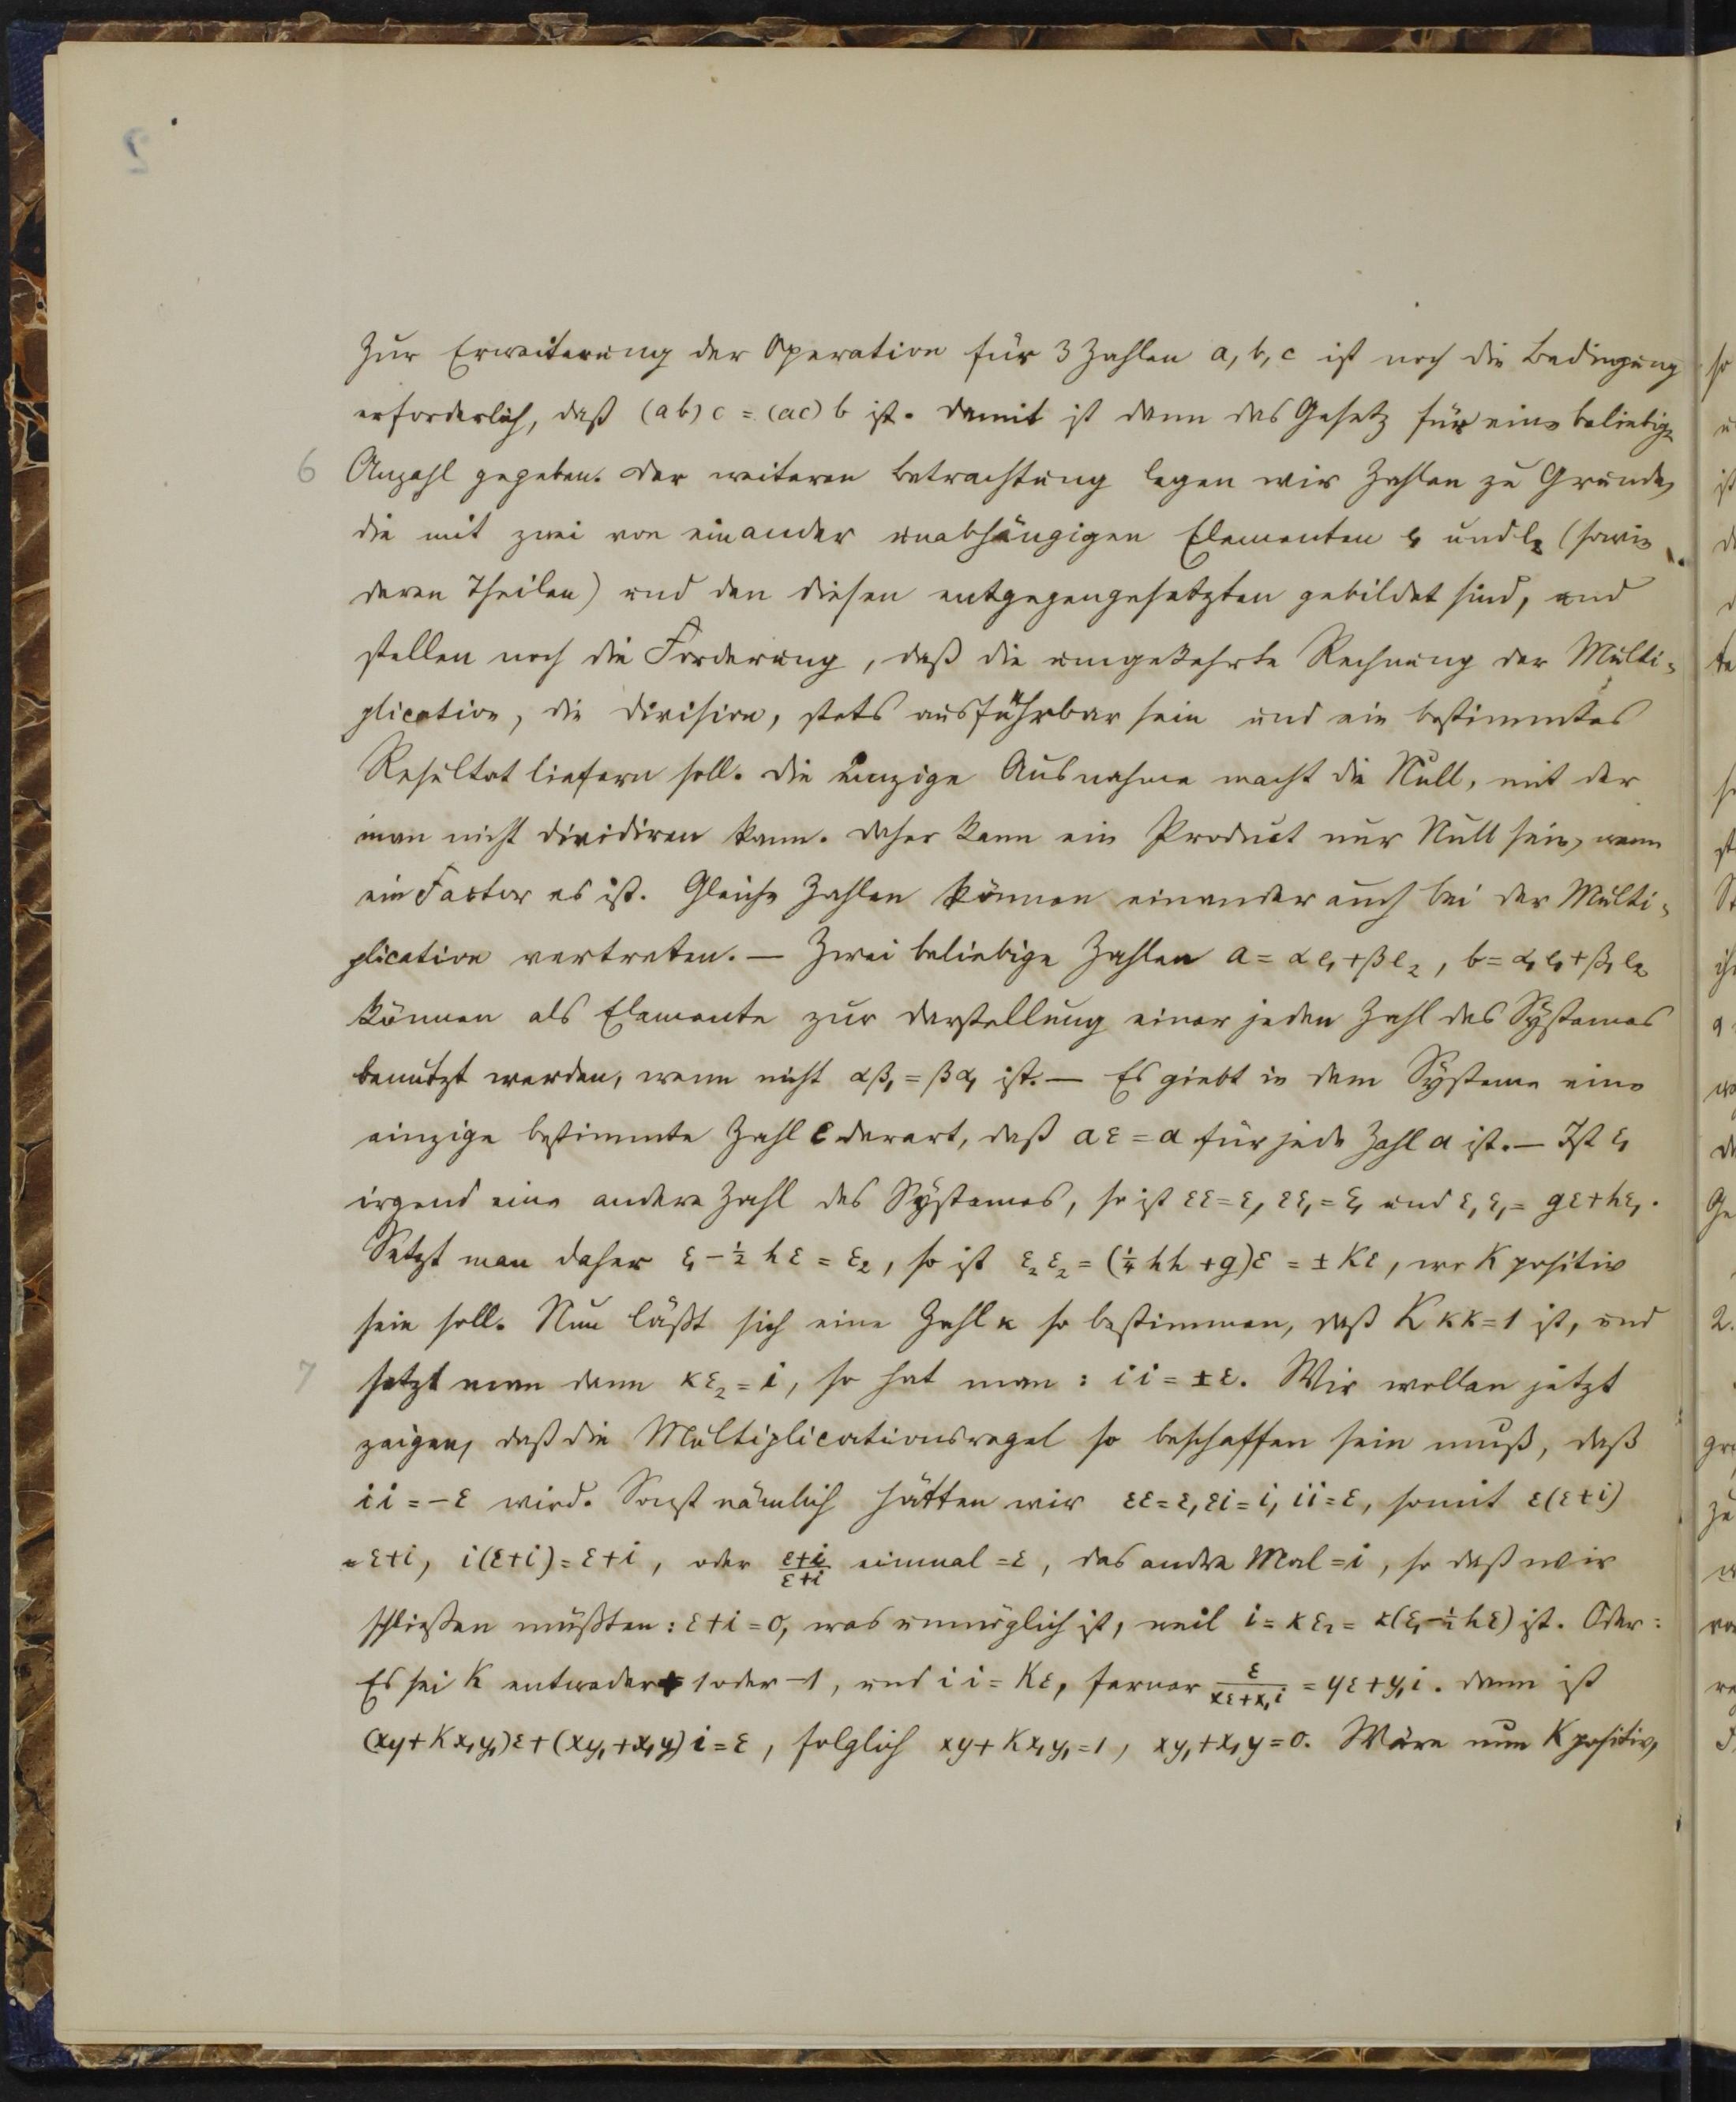 Zur Erweiterung der Operation für 3 Zahlen a, b, c ist noch die Bedingung
erforderlich, daß (ab)c = (ac)b ist. Damit ist dann das Gesetz für eine beliebige
6 Anzahl gegeben. Der weiteren Betrachtung legen wir Zahlen zu Grunde,
die mit zwei von einander unabhängigen Elementen e₁ und e₂ (sowie
deren Theilen) und den diesen entgegengesetzten gebildet sind, und
stellen noch die Forderung, daß die umgekehrte Rechnung der Multi-
plication, die Division, stets ausführbar sein und ein bestimmtes
Resultat liefern soll. Die einzige Ausnahme macht die Null, mit der
man nicht dividiren kann. Daher kann ein Product nur Null sein, wenn
ein Factor es ist. Gleiche Zahlen können einander auch bei der Multi-
plication vertreten. — Zwei beliebige Zahlen a = αe₁+βe₂, b = α₁e₁+β₁e₂
können als Elemente zur Darstellung einer jeden Zahl des Systemes
benutzt werden, wenn nicht αβ₁ = βα₁ ist. — Es giebt in dem Systeme eine
einzige bestimmte Zahl ε derart, daß aε = a für jede Zahl a ist. — Ist ε₁
irgend eine andere Zahl des Systemes, so ist εε = ε, εε₁ = ε₁ und ε₁ε₁ = gε+hε₁.
Setzt man daher ε₁ − ½ hε = ε₂, so ist ε₂ε₂ = (¼ hh + g)ε = ± Kε, wo K positiv
sein soll. Nun läßt sich eine Zahl κ so bestimmen, daß Kκκ = 1 ist, und
7 setzt man dann κε₂ = i, so hat man: ii = ±ε. Wir wollen jetzt
zeigen, daß die Multiplicationsregel so beschaffen sein muß, daß
ii = −ε wird. Sonst nämlich hätten wir εε = ε, εi = i, ii = ε, somit ε(ε+i)
= ε+i, i(ε+i) = ε+i, oder (ε+i)/(ε+i) einmal = ε, das andre Mal = i, so daß wir
schließen müßten: ε+i = 0, was unmöglich ist, weil i = κε₂ = κ(ε₁−½hε) ist. Oder:
Es sei K entweder + 1 oder −1, und ii = Kε, ferner ε/(xε+x₁i) = yε+y₁i. Dann ist
(xy+Kx₁y₁)ε+(xy₁+x₁y)i = ε, folglich xy+Kx₁y₁ = 1, xy₁+x₁y = 0. Wäre nun K positiv,